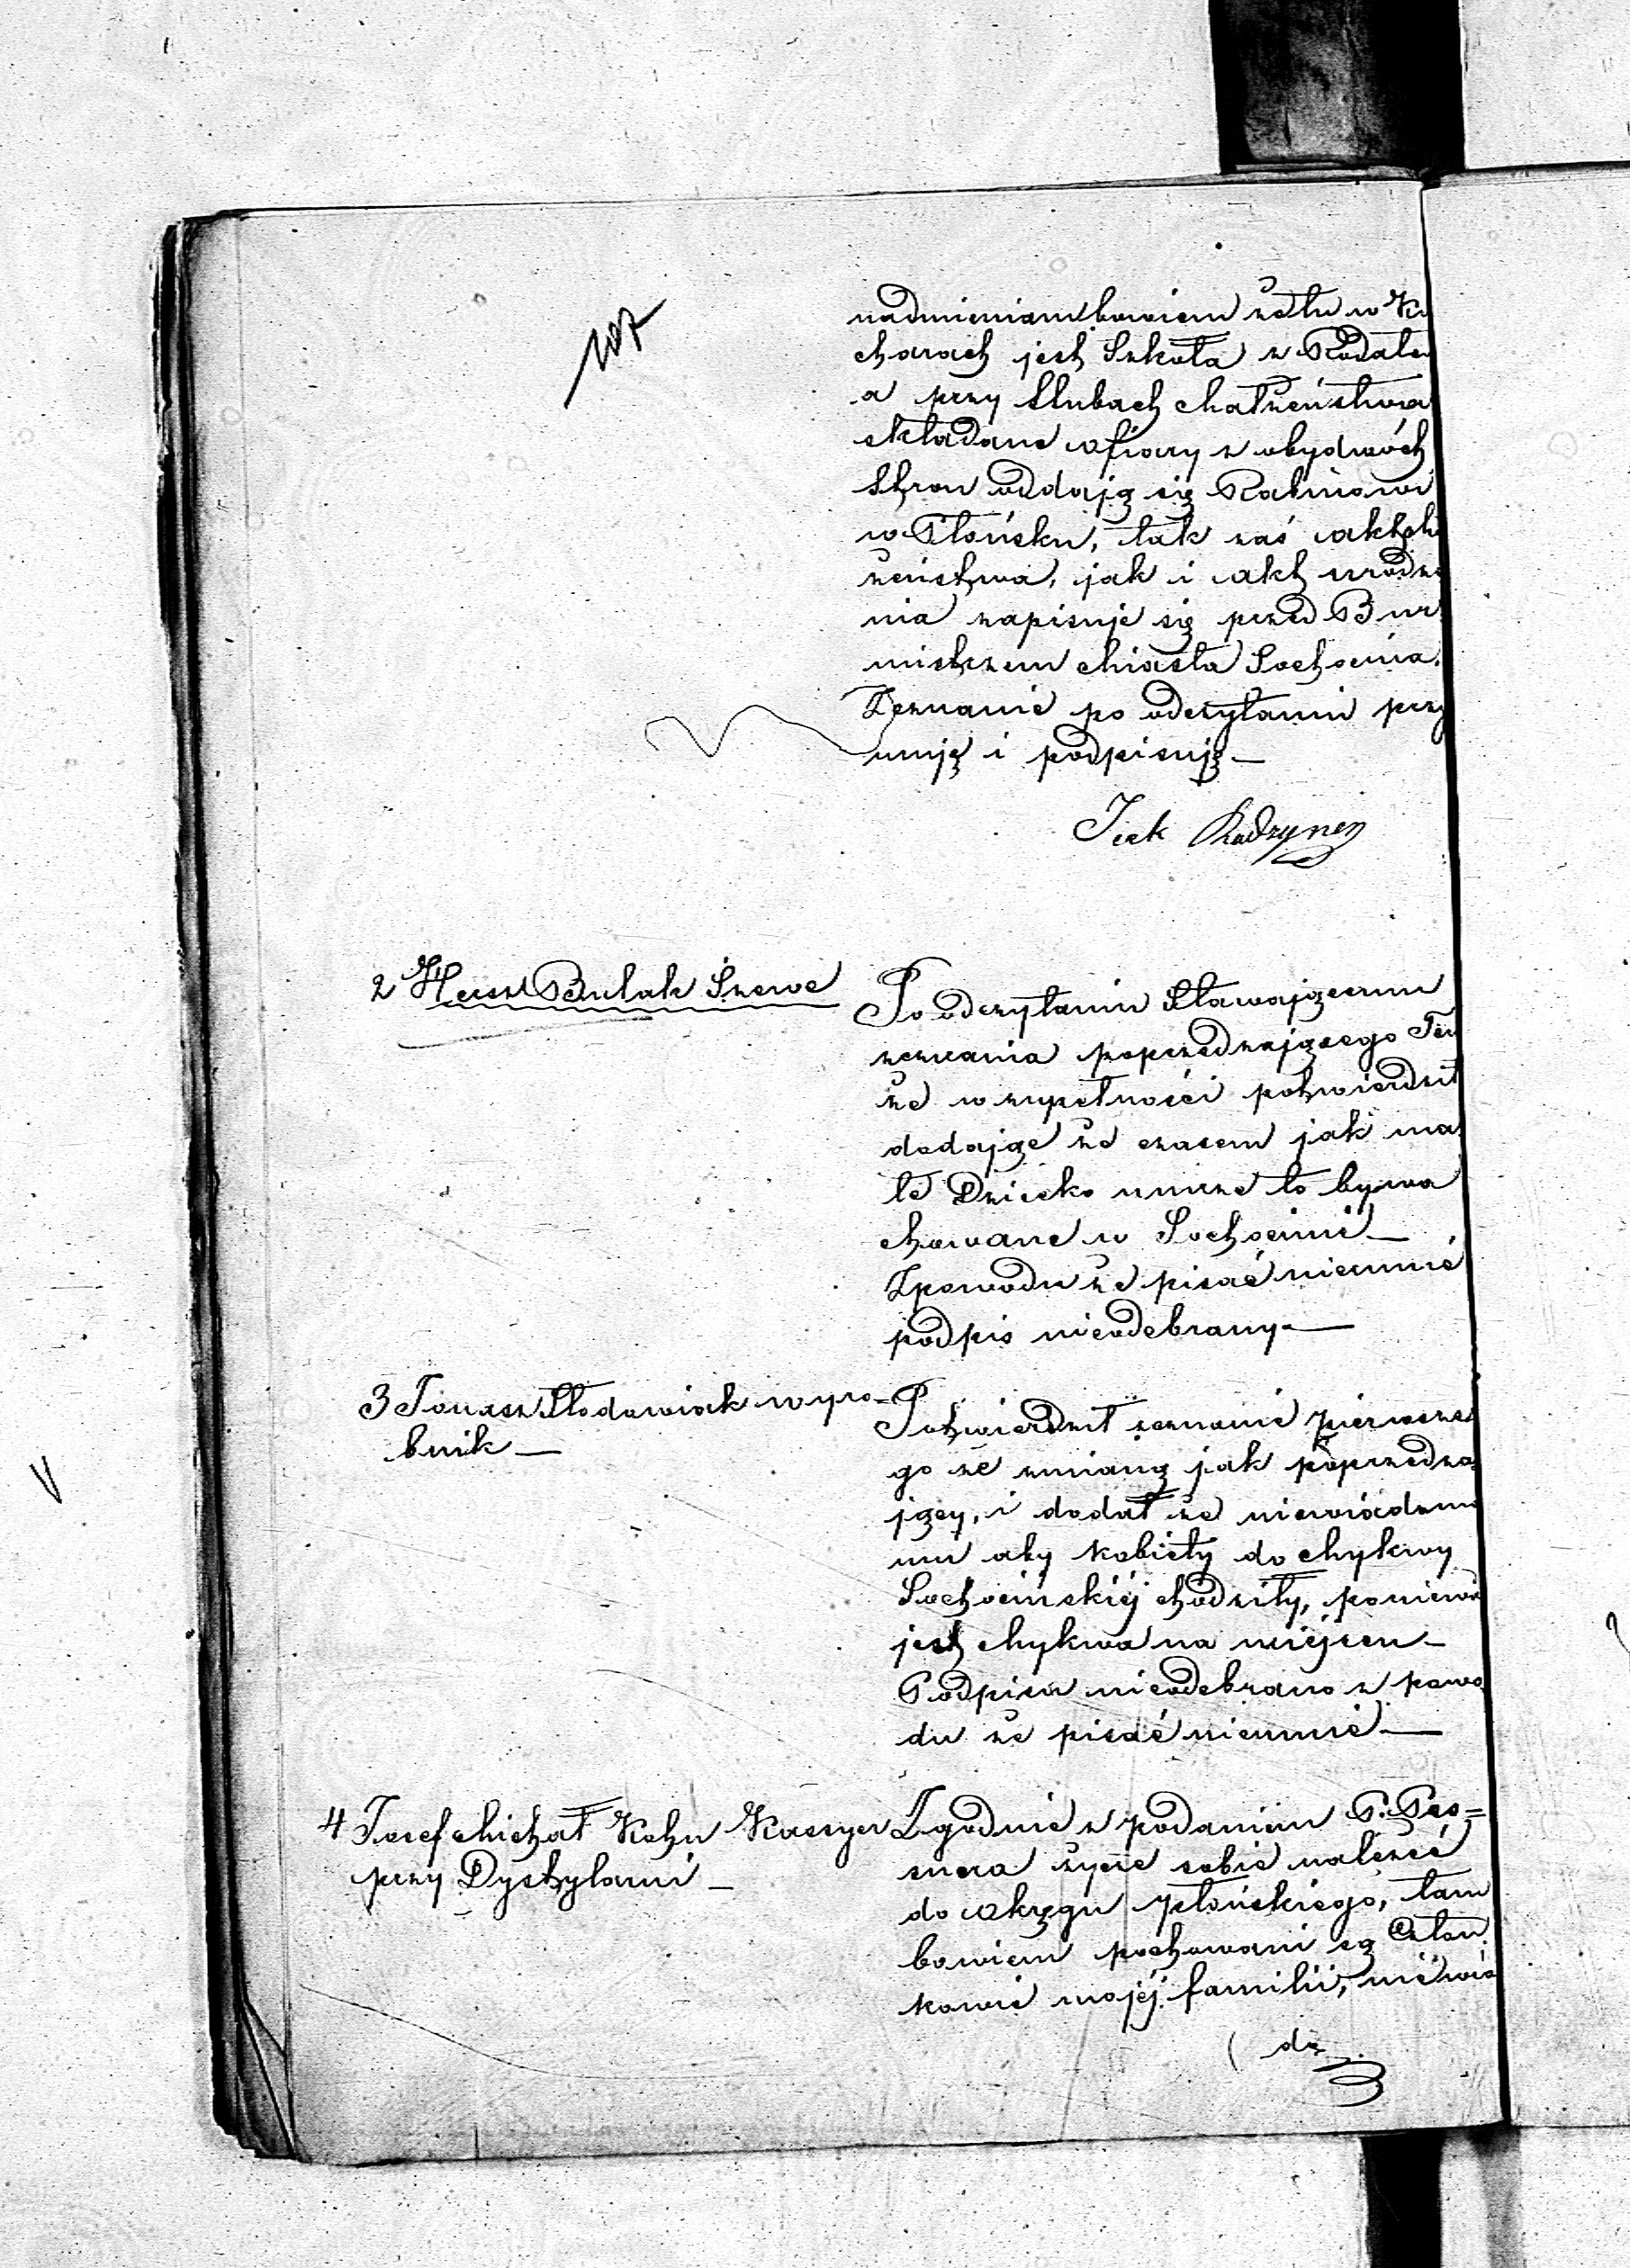 107
nadmieniam bowiem że tu w Ku
charach jest Szkoła z Rodałem
a przy Slubach Małżeństwa
składane ofiary z obydwóch
Stron oddają się Rabinowi
w Płońsku, tak zaś akt Mał
żeństwa, jak i akt urodze
nia zapisuje się przed Bur
mistrzem Miasta Sochocina.
Zeznanie po odczytaniu przy
imuję i podpisuję –
Icek Radzyner
2 Hersz Bulak Szewc
Po odczytaniu Stawającemu
zeznania poprzedzającego Ten
że w zupełności potwierdził
dodając że czasem jak ma
łe Dziecko umrze to bywa
chowane w Sochocinie –
Z powodu że pisać nieumie
podpis nieodebrany –
3 Tomasz Słodowiak wyro-
bnik –
Potwierdził zeznanie pierwsze
go ze zmianą jak poprzedza
jący, i dodał że niewiadomo
mu aby kobiety do Mykwy
Sochocińskiéj chodziły, poniewa
jest Mykwa na miejscu –
Podpisu nieodebrano z powo
du że pisać nieumie –
4 Josef Michał Kohn Kassyer
przy Dystylarni –
Zgodnie z podaniem P. Pos=
snera życzę sobie należeć
do okręgu płońskiego, tam
bowiem pochowani są Człon
kowie mojéj familii, niewi
dzę